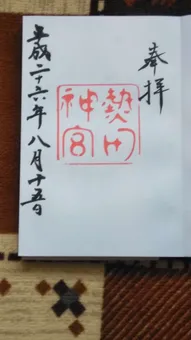 奉拝
熱田
神宮
平成二十六年八月十五日